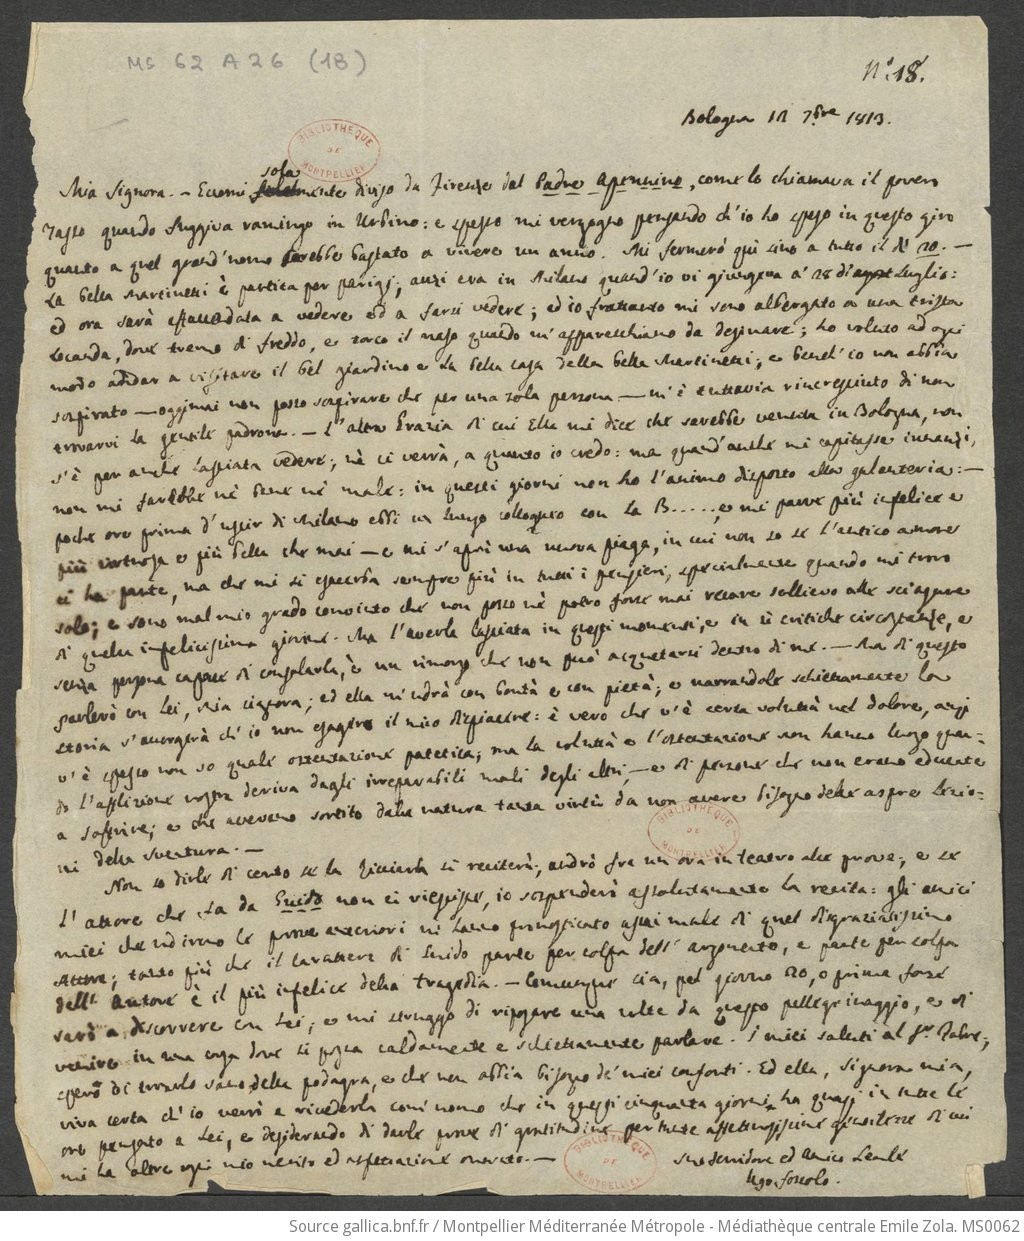 MS 62 A 26 (18)
N.° 18.
Bologna 12 7.bre 1813.
BIBLIOTHEQUE DE MONTPELLIER
sola
Mia Signora. — Eccomi mente diviso da Firenze dal Padre Apennino, come lo chiamava il povero
Tasso quando fuggiva ramingo in Urbino: e spesso mi vergogno pensando ch'io ho speso in questo giro
quanto a quel grand'uomo sarebbe bastato a vivere un anno. Mi fermerò qui sino a tutto il dì 20. —
La bella Martinetti è partita per Parigi; anzi era in Milano quand'io vi giungeva a' 28 di Luglio:
ed ora sarà andata a vedere ed a farsi vedere; ed io frattanto mi sono albergato a una trista
locanda, dove tremo di freddo, e torco il naso quando m'apparecchiano da desinare; ho voluto ad ogni
modo andar a visitare il bel giardino e la bella casa della bella Martinetti; e bench'io non abbia
sospirato — oggimai non posso sospirare che per una sola persona — m'è tuttavia rincresciuto di non
trovarvi la gentile padrona. — L'altra Grazia di cui Ella mi dice che sarebbe venuta in Bologna, non
s'è per anche lasciata vedere; nè ci verrà, a quanto io credo: ma quand'anche mi capitasse innanzi,
non mi farebbe nè bene nè male: in questi giorni non ho l'animo disposto alla galanteria: —
poche ore prima d'uscir di Milano ebbi un lungo colloquio con la B....., e mi parve più infelice e
più virtuosa e più bella che mai — e mi s'aprì una nuova piaga, in cui non so se l'antico amore
ci ha parte, ma che mi si esacerba sempre più in tutti i pensieri, specialmente quando mi trovo
solo; e sono mal mio grado convinto che non posso nè potrò forse mai recare sollievo alle sciagure
di quella infelicissima giovine. Ma l'averla lasciata in questi momenti, e in sì critiche circostanze, e
senza persona capace di consolarla, è un rimorso che non può acquetarsi dentro di me. — Ma di questo
parlerò con Lei, Mia Signora; ed ella m'udrà con bontà e con pietà; e narrandole schiettamente la
storia s'accorgerà ch'io non esagero il mio dispiacere: è vero che v'è certa voluttà nel dolore, anzi
v'è spesso non so quale ostentazione patetica; ma la voluttà e l'ostentazione non hanno luogo quan-
do l'afflizione nostra deriva dagli irreparabili mali degli altri, — e di persone che non erano educate
a soffrire; e che avevano sortito dalla natura tanta virtù da non avere bisogno delle aspre lezio-
ni della sventura. —
BIBLIOTHEQUE DE MONTPELLIER
Non so dirle di certo se la Ricciarda si reciterà; andrò fra un'ora in teatro alle prove; e se
l'attore che fa da Guido non ci riescisse, io sospenderò assolutamente la recita: gli amici
miei che udirono le prove anteriori m'hanno pronosticato assai male di quel disgraziatissimo
attore; tanto più che il carattere di Guido parte per colpa dell'argomento, e parte per colpa
dell'Autore è il più infelice della tragedia. — Comunque sia, pel giorno 20, o prima forse
sarò a discorrere con Lei; e mi struggo di riposare una volta da questo pellegrinaggio, e di
venire in una casa dove si possa caldamente e schiettamente parlare. I miei saluti al S.r Fabre;
spero di trovarlo sano della podagra, e che non abbia bisogno de' miei conforti. Ed ella, Signora mia,
viva certa ch'io verrò a rivederla com'uomo che in questi cinquanta giorni ha quasi in tutte le
ore pensato a Lei, e desiderando di darle prove di gratitudine per tante affettuosissime di cui
mi ha oltre ogni mio merito ed aspettazione onorato. —
BIBLIOTHEQUE DE MONTPELLIER
Suo servidore ed Amico Leale
Ugo Foscolo.
Source gallica.bnf.fr / Montpellier Méditerranée Métropole - Médiathèque centrale Emile Zola. MS0062